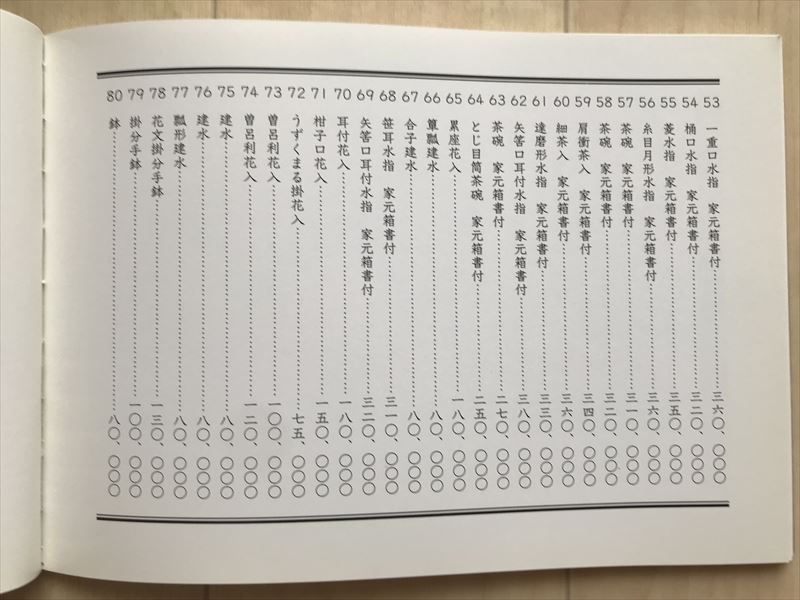 53 一重口水指 家元箱書付……三六〇、〇〇〇
54 桶口水指 家元箱書付……三二〇、〇〇〇
55 菱水指 家元箱書付……三五〇、〇〇〇
56 糸目月形水指 家元箱書付……三六〇、〇〇〇
57 茶碗 家元箱書付……三一〇、〇〇〇
58 茶碗 家元箱書付……三二〇、〇〇〇
59 肩衝茶入 家元箱書付……三四〇、〇〇〇
60 細茶入 家元箱書付……三六〇、〇〇〇
61 達磨形水指 家元箱書付……三三〇、〇〇〇
62 矢筈口耳付水指 家元箱書付……三八〇、〇〇〇
63 茶碗 家元箱書付……二七〇、〇〇〇
64 とじ目筒茶碗 家元箱書付……二五〇、〇〇〇
65 累座花入……一八〇、〇〇〇
66 箪瓢建水……八〇、〇〇〇
67 合子建水……八〇、〇〇〇
68 笹耳水指 家元箱書付……三一〇、〇〇〇
69 矢筈口耳付水指 家元箱書付……三二〇、〇〇〇
70 耳付花入……一八〇、〇〇〇
71 柑子口花入……一五〇、〇〇〇
72 うずくまる掛花入……七五、〇〇〇
73 曽呂利花入……一〇〇、〇〇〇
74 曽呂利花入……一二〇、〇〇〇
75 建水……八〇、〇〇〇
76 建水……八〇、〇〇〇
77 瓢形建水……八〇、〇〇〇
78 花文掛分手鉢……一三〇、〇〇〇
79 掛分手鉢……一〇〇、〇〇〇
80 鉢……八〇、〇〇〇